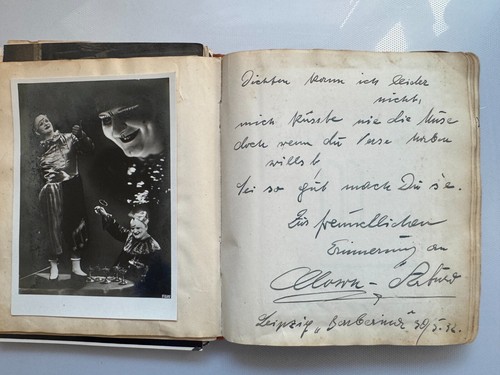 Dichten kann ich leider
nicht,
mich küsste nie die Muse
doch wenn du
willst
sei so gut mach Du sie.
Zur freundlichen
Erinnerung an
Clown
Leipzig "Barberina"